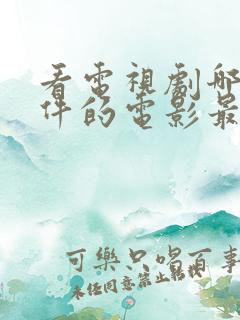 看電視劇那
件的電影最
可樂只喝百事
未经同意禁止转载